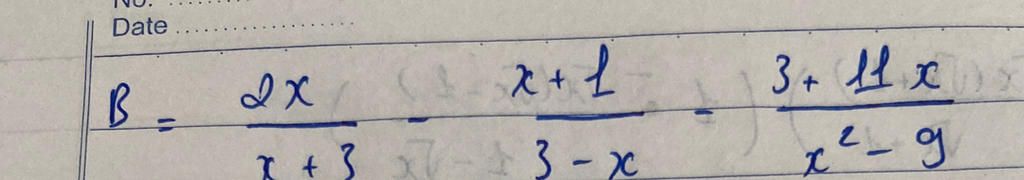 No.
Date
B = \frac{2x}{x + 3} - \frac{x + 1}{3 - x} - \frac{3 + 11x}{x^2 - 9}